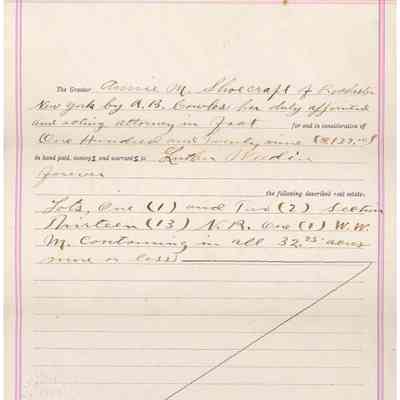 The Grantor Annie M. Shoecraft of Rochester
New York by A. B. Cowles her duly appointed
and acting attorney in fact for and in consideration of
One Hundred and Twenty nine
in hand paid, conveys and warrants to Luther
forever
the following described real estate:
Lots, One (1) and Two (2) Section
Thirteen (13) N. R. One (1) W. W.
M. Containing in all 32.25 acres
more or less